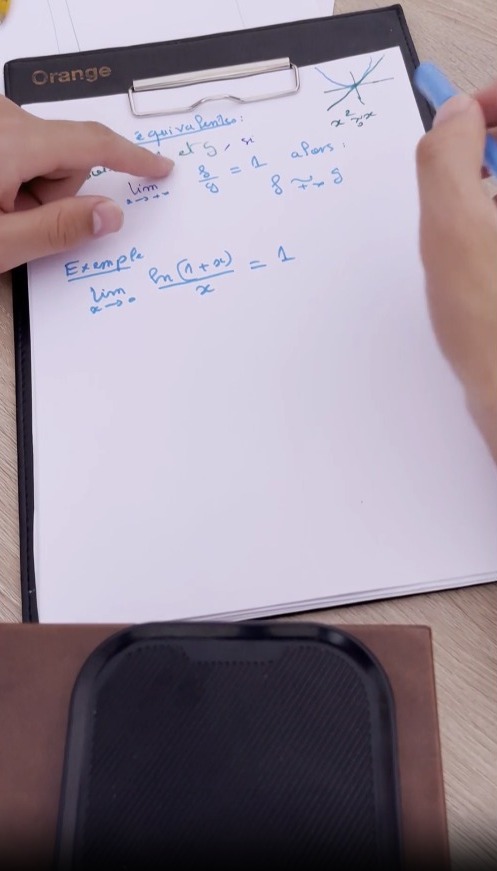 Orange
équivalentes:
et g, si
lim x→+∞ f/g = 1 alors:
f ~ +∞ g
x² ~ 0 x
Exemple
lim x→0 ln(1+x)/x = 1